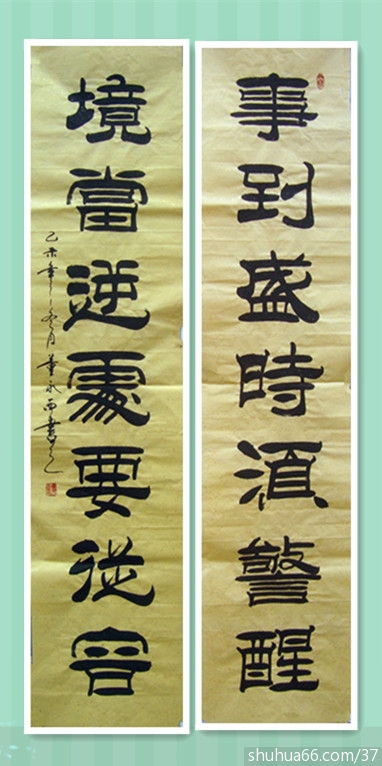 事到盛時湏警醒
境當逆處要從容
乙未年之冬月董永西書之
shuhua66.com/37